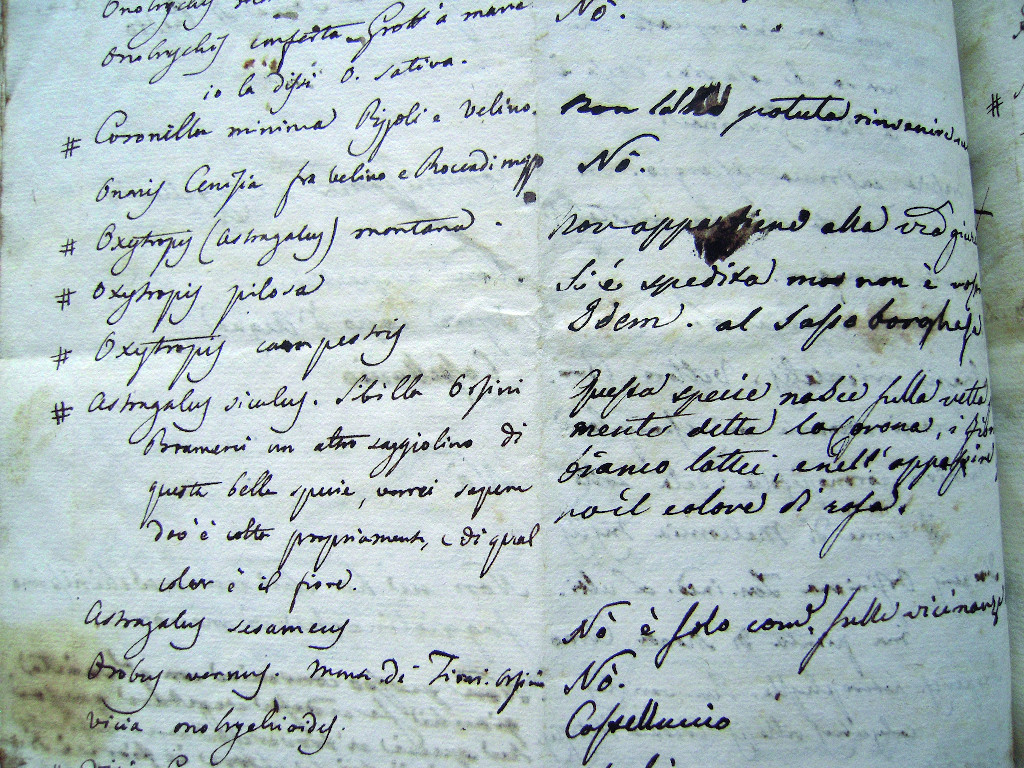 Onobrychis
Nò.
Onobrychis conferta Grott a mare
io la dissi O. sativa.
# Coronilla minima Pizzoli e Velino.
non potuta rinvenire
Ononis Cenisia fra Velino e Rocca di mezzo
Nò.
# Oxytropis (Astragalus) montana
non appartiene alla
# Oxytropis pilosa
Si è spedita ma non è
# Oxytropis campestris
Idem. al Sasso borghese
# Astragalus siculus. Sibilla Orsini
Questa specie nasce sulla vetta
Bramerei un altro saggiolino di
mente detta la Corona, i fiori
questa bella specie, vorrei sapere
bianco lattei, e nell' appassire
dov'è colta propriamente, e di qual
il colore di rosa.
color è il fiore.
Astragalus sesameus
Nò è solo com. sulle vicinanze
Orobus vernus. Mont. di Fiori. Orsini
Nò.
Vicia onobrychioides.
Castelluccio